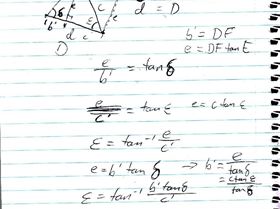 d = D
b' d c
D
b' = DF
e = DF tan ε
e/b' = tan δ
= tan ε e = c tan ε
ε = tan⁻¹ e/c'
e = b' tan δ → b' = e/tan δ
= c tan ε/tan δ
ε = tan⁻¹ (b' tan δ)/c'